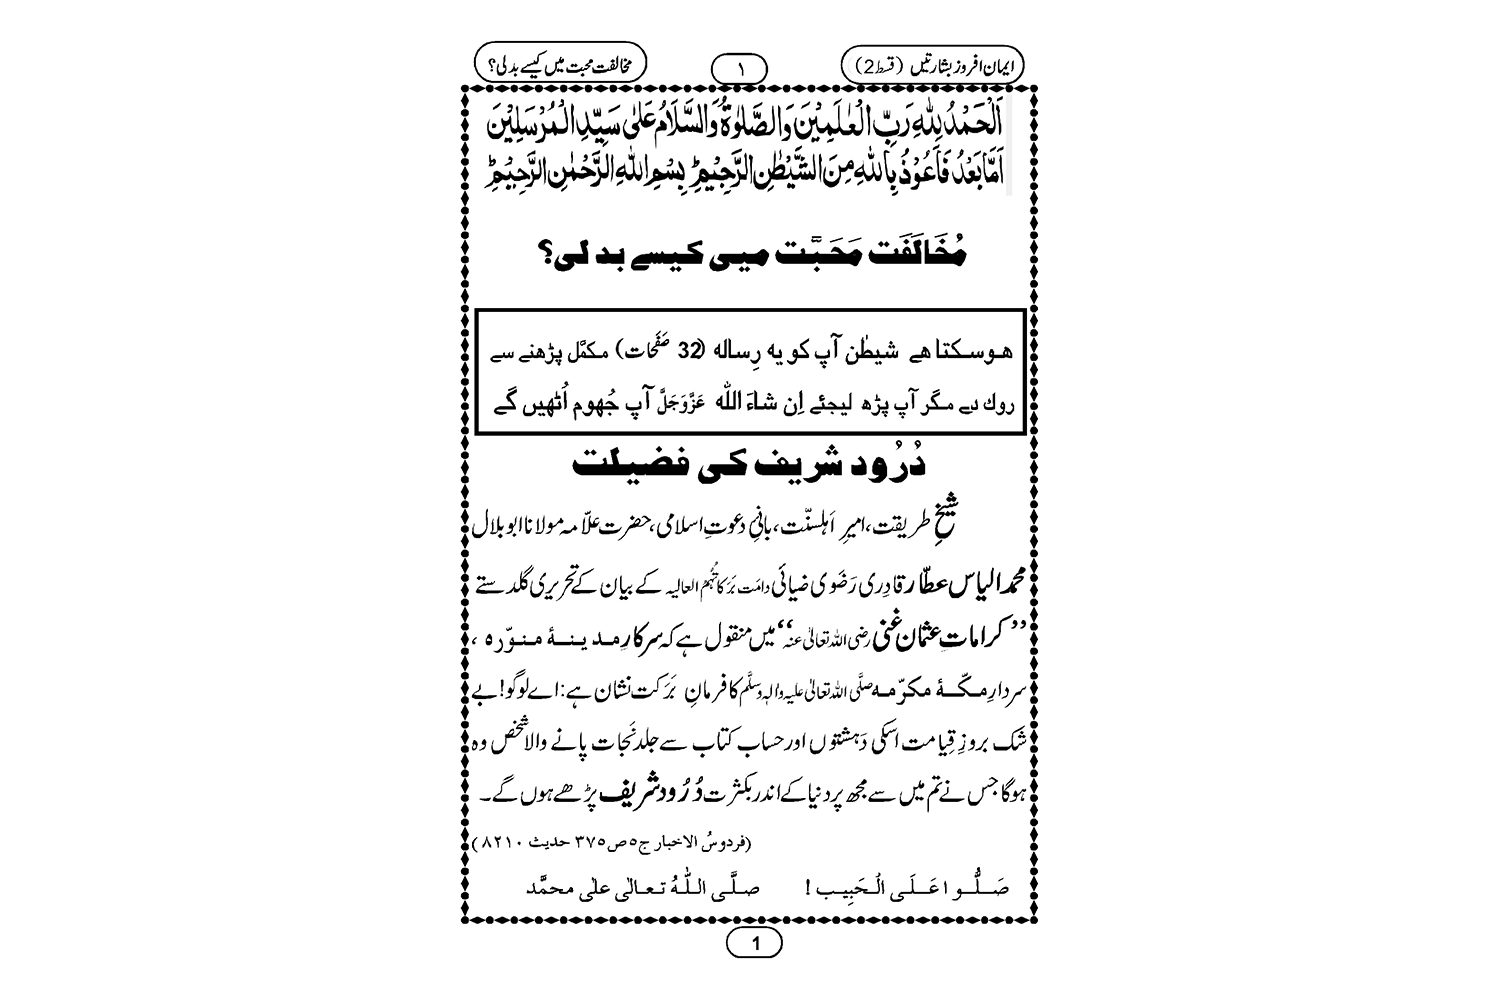 ایمان افروز بشارتیں (قسط 2)
۱
مخالفت محبت میں کیسے بدلی؟
اَلْحَمْدُ لِلّٰهِ رَبِّ الْعٰلَمِيْنَ وَالصَّلٰوةُ وَالسَّلَامُ عَلٰى سَيِّدِ الْمُرْسَلِيْنَ
اَمَّا بَعْدُ فَاَعُوْذُ بِاللّٰهِ مِنَ الشَّيْطٰنِ الرَّجِيْمِ ؕ بِسْمِ اللّٰهِ الرَّحْمٰنِ الرَّحِيْمِ ؕ
مُخَالَفَت مَحَبَّت میں کیسے بدلی؟
ہوسکتا ہے شیطٰن آپ کو یہ رِسالہ (32 صَفَحات) مکمَّل پڑھنے سے
روک دے مگر آپ پڑھ لیجئے اِن شاءَ اللّٰه عَزَّوَجَلَّ آپ جُھوم اُٹھیں گے
دُرُود شریف کی فضیلت
شیخِ طریقت، امیرِ اَہلسنّت، بانیِ دعوتِ اسلامی، حضرت علّامہ مولانا ابو بلال
محمد الیاس عطّار قادِری رَضَوی ضیائی دامَت بَرَکاتُہُم العالیہ کے بیان کے تحریری گلدستے
’’کراماتِ عثمان غنی رضی اللہ تعالیٰ عنہ‘‘ میں منقول ہے کہ سرکارِ مدینۂ منوّرہ،
سردارِ مکّۂ مکرّمہ صلَّی اللہ تعالیٰ علیہ واٰلہٖ وسلَّم کا فرمانِ بَرَکت نشان ہے: اے لوگو! بے
شک بروزِ قِیامت اسکی دَہشتوں اور حساب کتاب سے جلد نَجات پانے والا شخص وہ
ہوگا جس نے تم میں سے مجھ پر دنیا کے اندر بکثرت دُرُود شریف پڑھے ہوں گے۔
(فردوسُ الاخبار ج٥ص٣٧٥ حدیث ٨٢١٠)
صَلُّوا عَلَی الْحَبِیب! صلَّی اللّٰهُ تعالٰی علٰی محمَّد
1